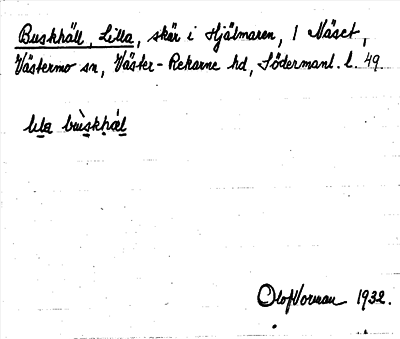 Buskhäll, Lilla, skär i Hjälmaren, 1 Näset,
Västermo sn, Väster-Rekarne hd, Södermanl. l. 49
lıla bùskhäl
Olof Vorman 1932.